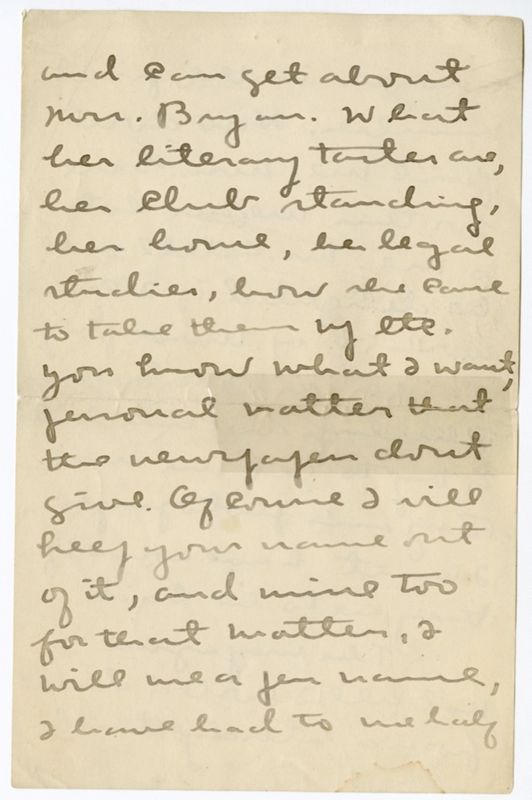 and can get about
Mrs. Bryan. What
her literary tastes are,
her Club standing,
her home, her legal
studies, how she came
to take them up etc.
you know what I want,
personal matter that
the newspapers dont
give. Of course I will
keep your name out
of it, and mine too
for that matter, I
will use a pen name,
I have had to use half